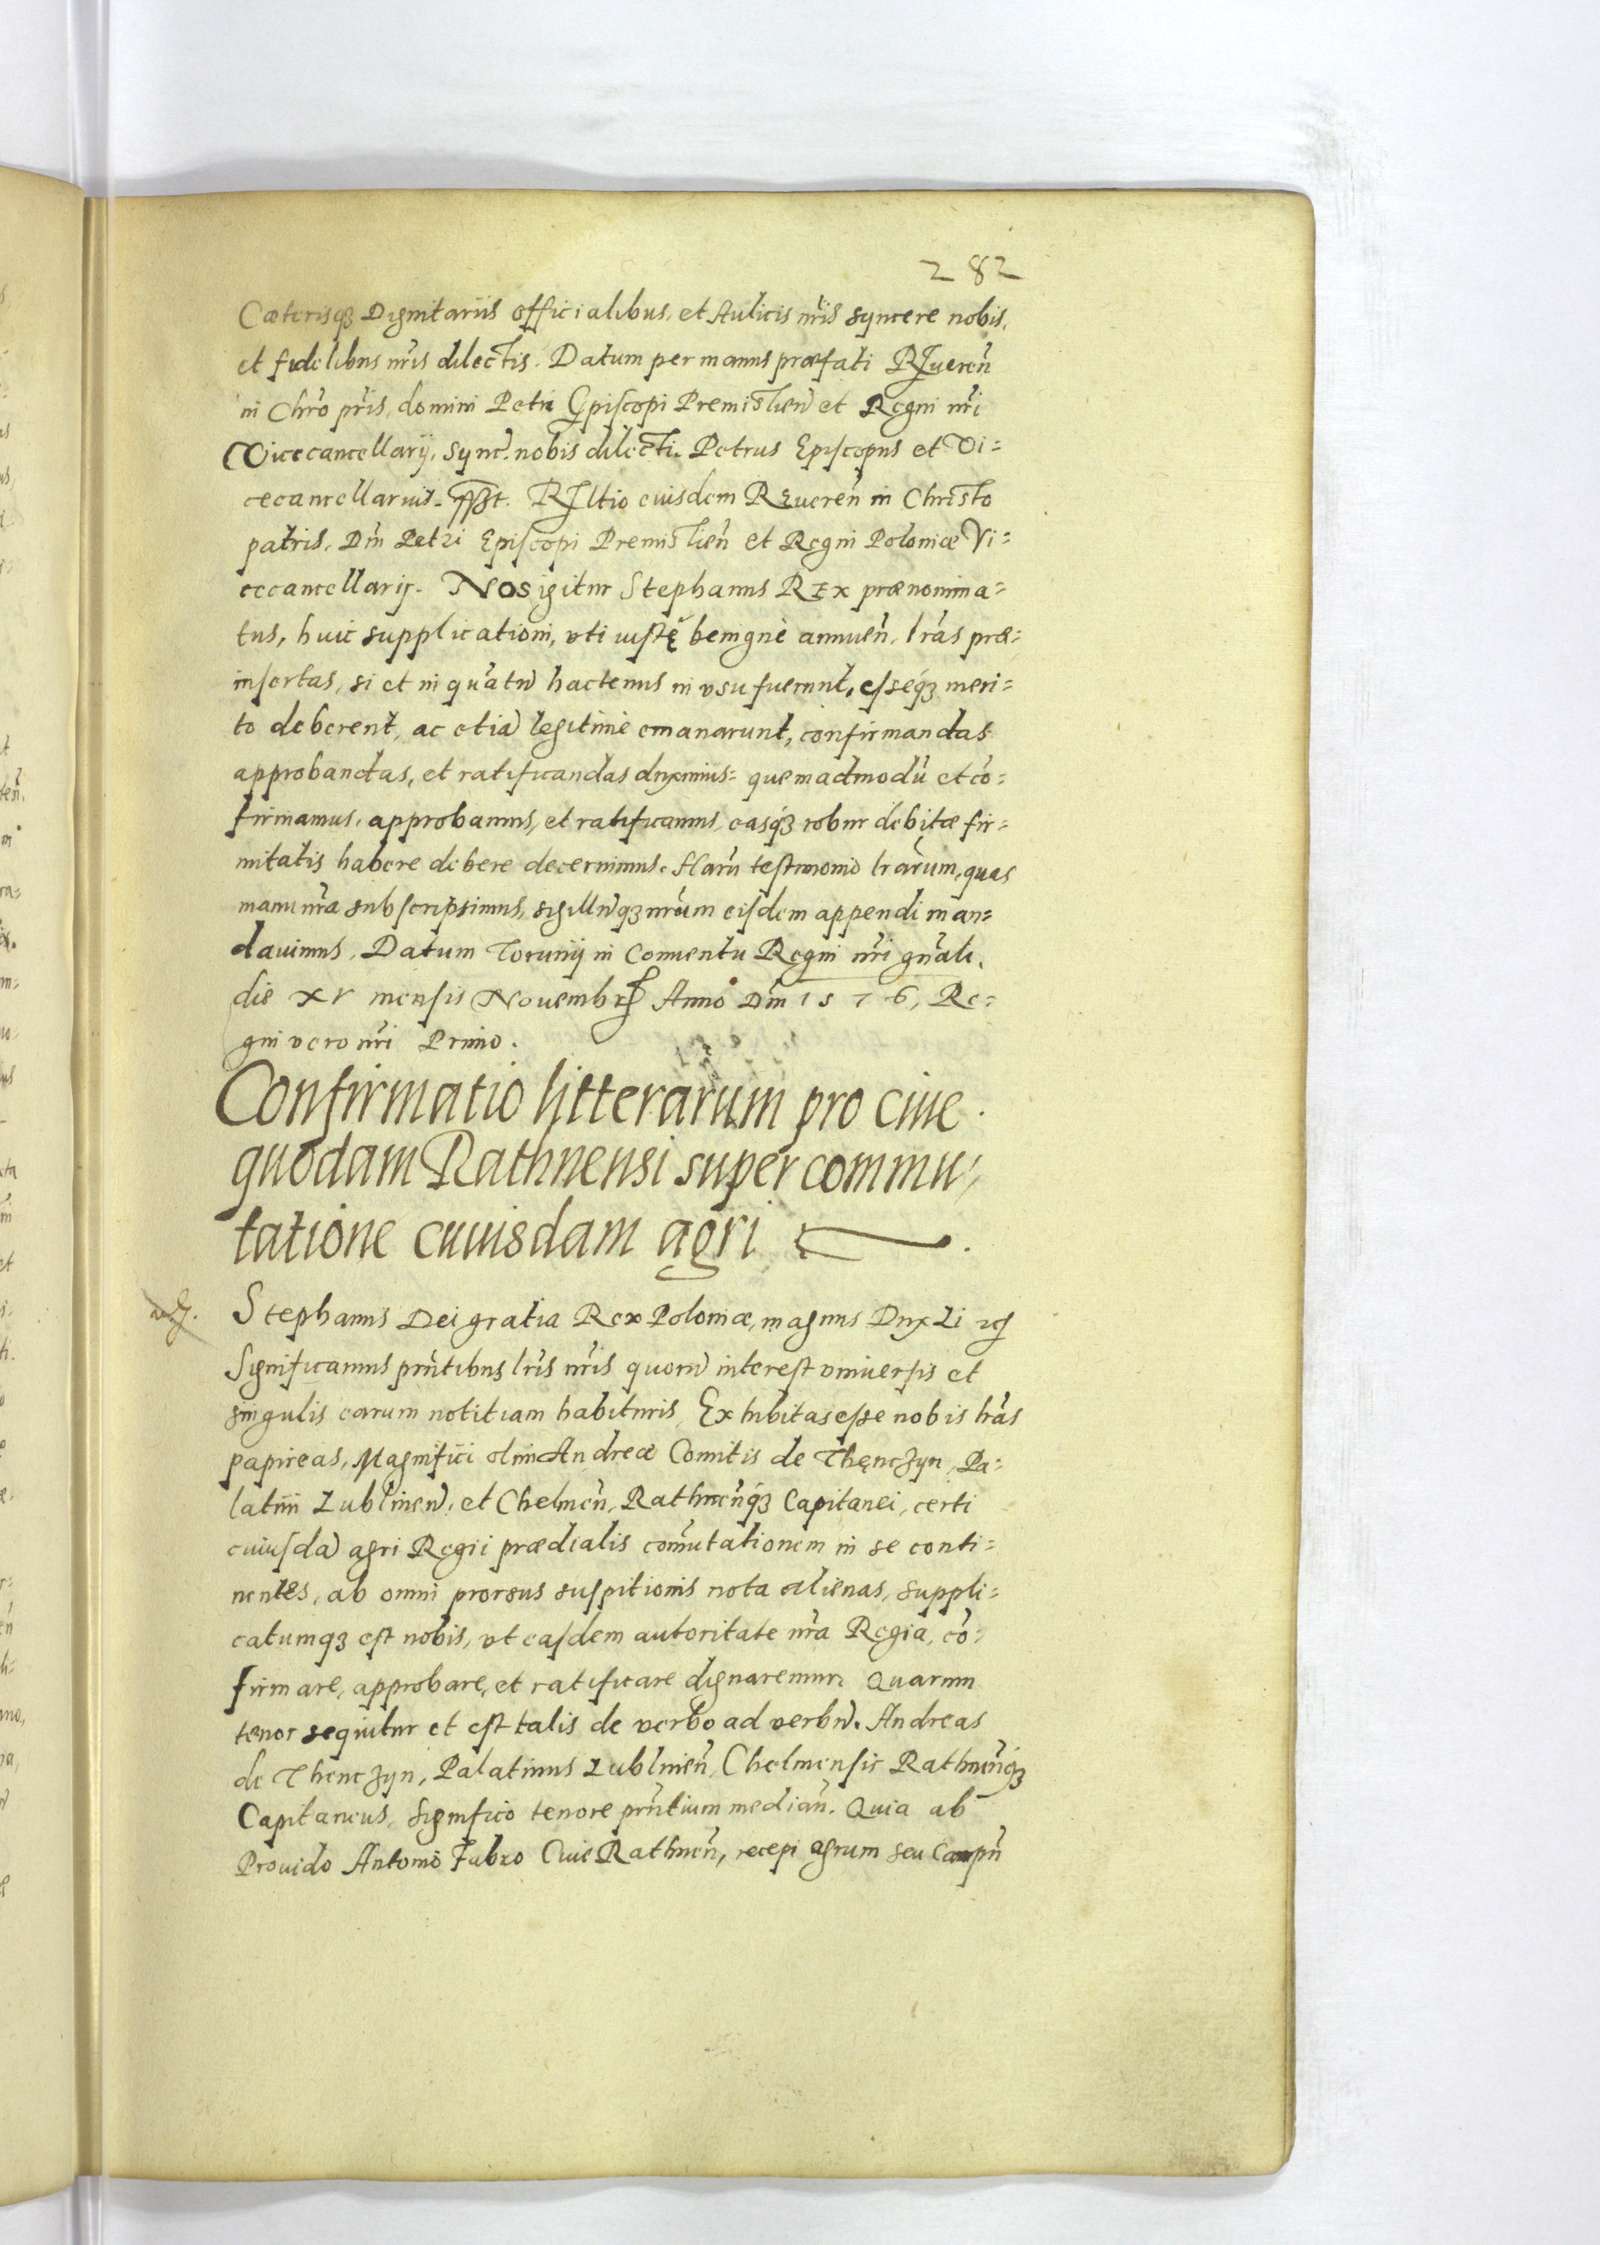 282
Cæterisq₃ Dignitariis officialibus, et Aulicis nr̃is syncere nobis,
et fidelibus nr̃is dilectis. Datum per manus præfati Reueren̄
in Chr̃o pr̃is, domini Petri Episcopi Premislien̄ et Regni nr̃i
Vicecancellarij, sync̄. nobis dilecti. Petrus Episcopus et Vi=
cecancellarius. sst. Rltio eiusdem Reueren̄ in Christo
patris, Dn̄i Petri Episcopi Premislien̄ et Regni Poloniæ Vi=
cecancellarij. Nos igitur Stephanus Rex prænomina=
tus, huic supplicationi, vti iustę benignè annuen̄, lr̃as præ=
insertas, si et in quātū hactenus in vsu fuerunt, esseq́₃ meri=
to deberent, ac etiā legitimè emanarunt, confirmandas
approbandas, et ratificandas duximus= quemadmodū et cō=
firmamus, approbamus, et ratificamus, easq́₃ robur debitæ fir=
mitatis habere debere decernimus. Harū testimonio lr̃arum, quas
manu nr̃a subscripsimus, sigillūq₃ nr̃um eisdem appendi man=
dauimus. Datum Torunij in Conuentu Regni nr̃i gn̄ali.
die XV mensis Nouembris Anno Dn̄i 1576, Re=
gni vero nr̃i Primo.
Confirmatio litterarum pro ciue
quodam Rathnensi super commu/
tatione cuiusdam agri
Stephanus Dei gratia Rex Poloniæ, magnus Dux Li
Significamus prn̄tibus lr̃is nr̃is quorū interest vniuersis et
singulis earum notitiam habituris, Exhibitas esse nobis lr̃as
papireas, Magnifici olim Andreæ Comitis de Thęnczyn, Pa=
latini Lublinen̄, et Chelmen̄, Rathnen̄q́₃ Capitanei, certi
cuiusdā agri Regii prædialis com̄utationem in se conti=
nentes, ab omni prorsus suspitionis nota alienas, suppli=
catumq₃ est nobis, vt easdem autoritate nr̃a Regia, cō=
firmare, approbare, et ratificare dignaremur. Quarum
tenor sequitur et est talis de verbo ad verbū. Andreas
de Thenczyn, Palatinus Lublinen̄, Chelmensis Rathnen̄q₃
Capitaneus, Significo tenore prn̄tium median̄. Quia ab
Prouido Antonio Fabro Ciue Rathnen̄, recepi agrum seu Campū